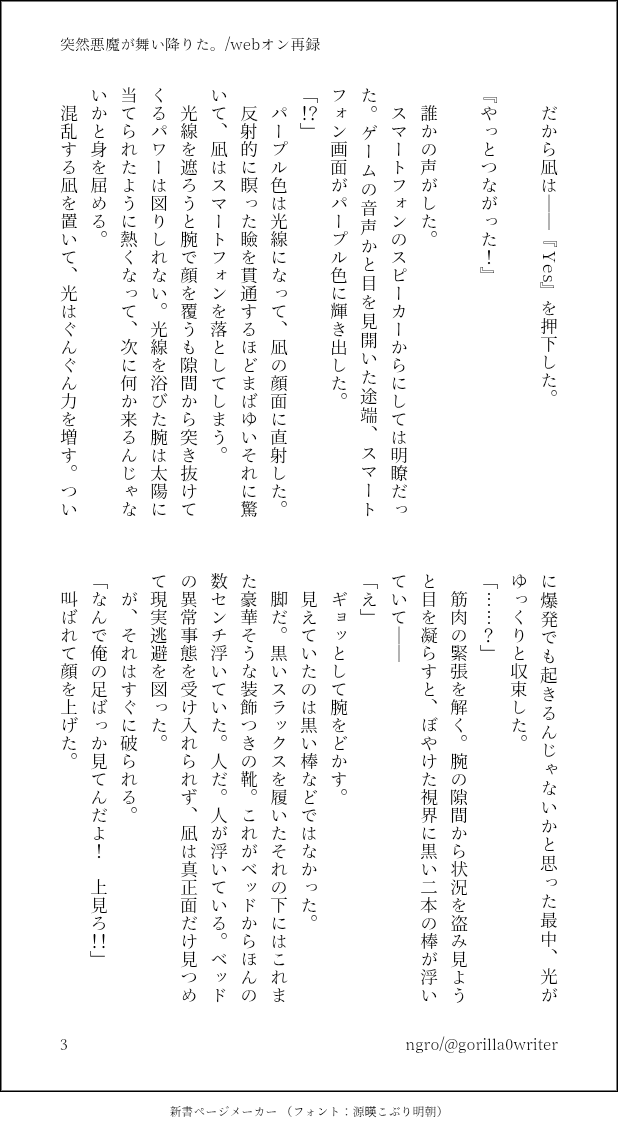 突然悪魔が舞い降りた。/webオン再録
だから凪は――『Yes』を押下した。
『やっとつながった！』
誰かの声がした。
スマートフォンのスピーカーからにしては明瞭だっ
た。ゲームの音声かと目を見開いた途端、スマート
フォン画面がパープル色に輝き出した。
「!?」
パープル色は光線になって、凪の顔面に直射した。
反射的に瞑った瞼を貫通するほどまばゆいそれに驚
いて、凪はスマートフォンを落としてしまう。
光線を遮ろうと腕で顔を覆うも隙間から突き抜けて
くるパワーは図りしれない。光線を浴びた腕は太陽に
当てられたように熱くなって、次に何か来るんじゃな
いかと身を屈める。
混乱する凪を置いて、光はぐんぐん力を増す。つい
に爆発でも起きるんじゃないかと思った最中、光が
ゆっくりと収束した。
「……？」
筋肉の緊張を解く。腕の隙間から状況を盗み見よう
と目を凝らすと、ぼやけた視界に黒い二本の棒が浮い
ていて――
「え」
ギョッとして腕をどかす。
見えていたのは黒い棒などではなかった。
脚だ。黒いスラックスを履いたそれの下にはこれま
た豪華そうな装飾つきの靴。これがベッドからほんの
数センチ浮いていた。人だ。人が浮いている。ベッド
の異常事態を受け入れられず、凪は真正面だけ見つめ
て現実逃避を図った。
が、それはすぐに破られる。
「なんで俺の足ばっか見てんだよ！　上見ろ!!」
叫ばれて顔を上げた。
3
ngro/@gorilla0writer
新書ページメーカー （フォント：源暎こぶり明朝）